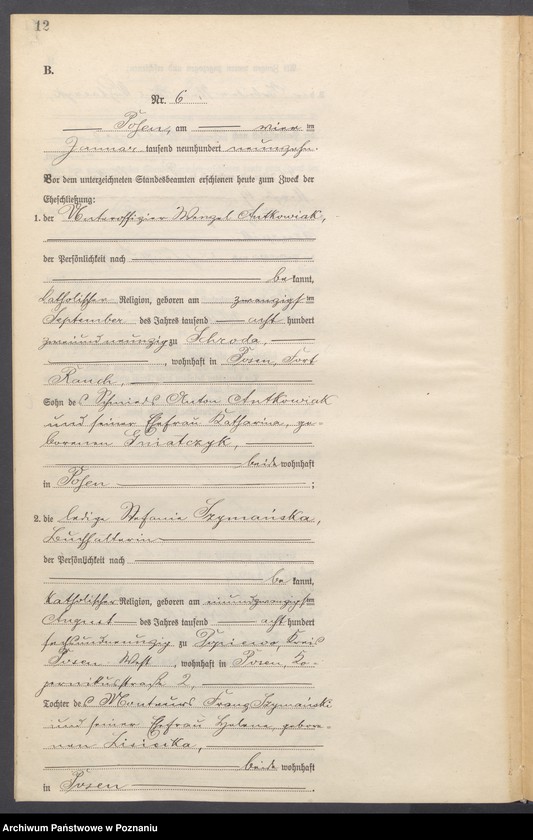 12
B.
Nr. 6
Posen, am vier ten
Januar tausend neunhundert neunzehn.
Vor dem unterzeichneten Standesbeamten erschienen heute zum Zweck der
Eheschließung:
1. der Unteroffizier Wenzel Antkowiak,
der Persönlichkeit nach
be kannt,
katholischer Religion, geboren am zwanzigsten
September des Jahres tausend acht hundert
zweiundneunzig zu Schroda,
, wohnhaft in Posen, Fort
Rauch,
Sohn des Schmieds Anton Antkowiak
und seiner Ehefrau Katharina, ge-
borenen Gniatczyk,
beide wohnhaft
in Posen ;
2. die ledige Stefanie Szymańska,
Buchhalterin
der Persönlichkeit nach
be kannt,
katholischer Religion, geboren am einundzwanzigsten
August des Jahres tausend acht hundert
sechsundneunzig zu Kreis
Posen West, wohnhaft in Posen, Ko-
pernikusstraße 2,
Tochter des Monteurs Franz Szymański
und seiner Ehefrau Helene, gebore-
nen
beide wohnhaft
in Posen .
Archiwum Państwowe w Poznaniu